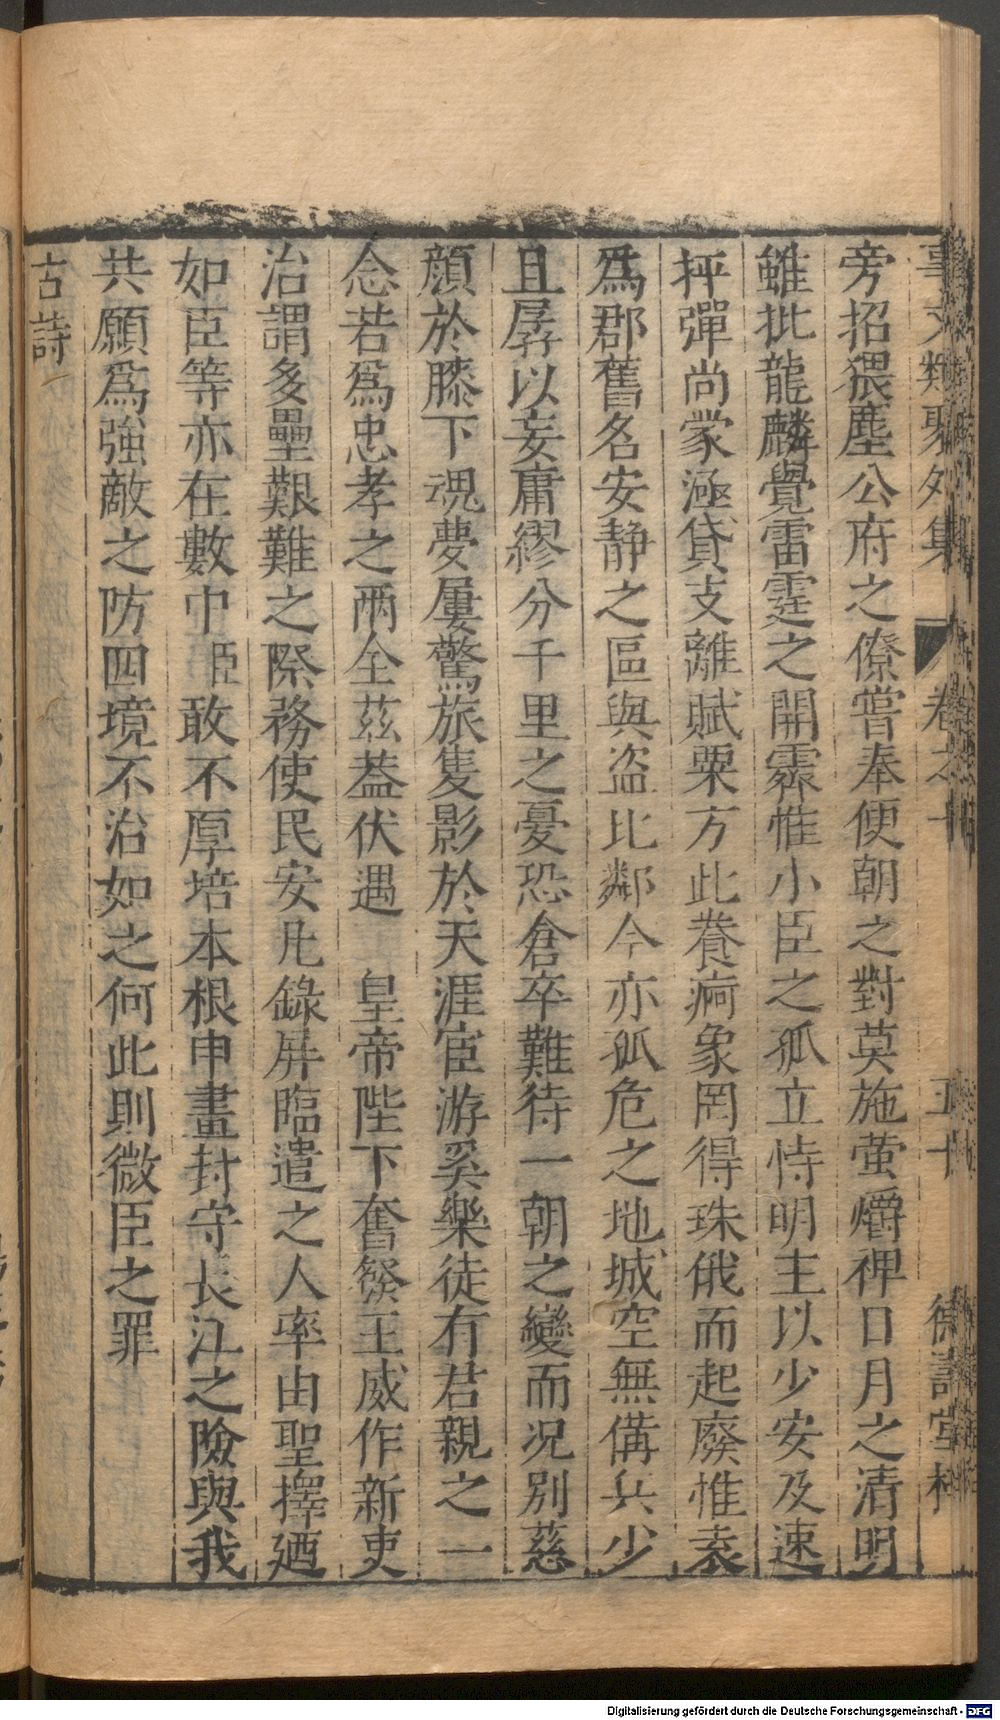 事文類聚外集 卷之十 五十 德壽堂梓
旁招猥塵公府之僚嘗奉便朝之對莫施螢爝裨日月之清明
雖批龍麟覺雷霆之開霽惟小臣之孤立恃明主以少安及速
抨彈尚蒙涵貸支離賦粟方此養痾象罔得珠俄而起廢惟袁
爲郡舊名安静之區與盗比鄰今亦孤危之地城空無備兵少
且孱以妄庸繆分千里之憂恐倉卒難待一朝之變而况別慈
顏於膝下魂夢屢驚旅隻影於天涯宦游奚樂徒有君親之一
念若爲忠孝之两全茲蓋伏遇 皇帝陛下奮發王威作新吏
治謂多壘艱難之際務使民安凡錄屏臨遣之人率由聖擇廼
如臣等亦在數中臣敢不厚培本根申畫封守長江之險與我
共願爲強敵之防四境不治如之何此則微臣之罪
古詩
Digitalisierung gefördert durch die Deutsche Forschungsgemeinschaft - DFG